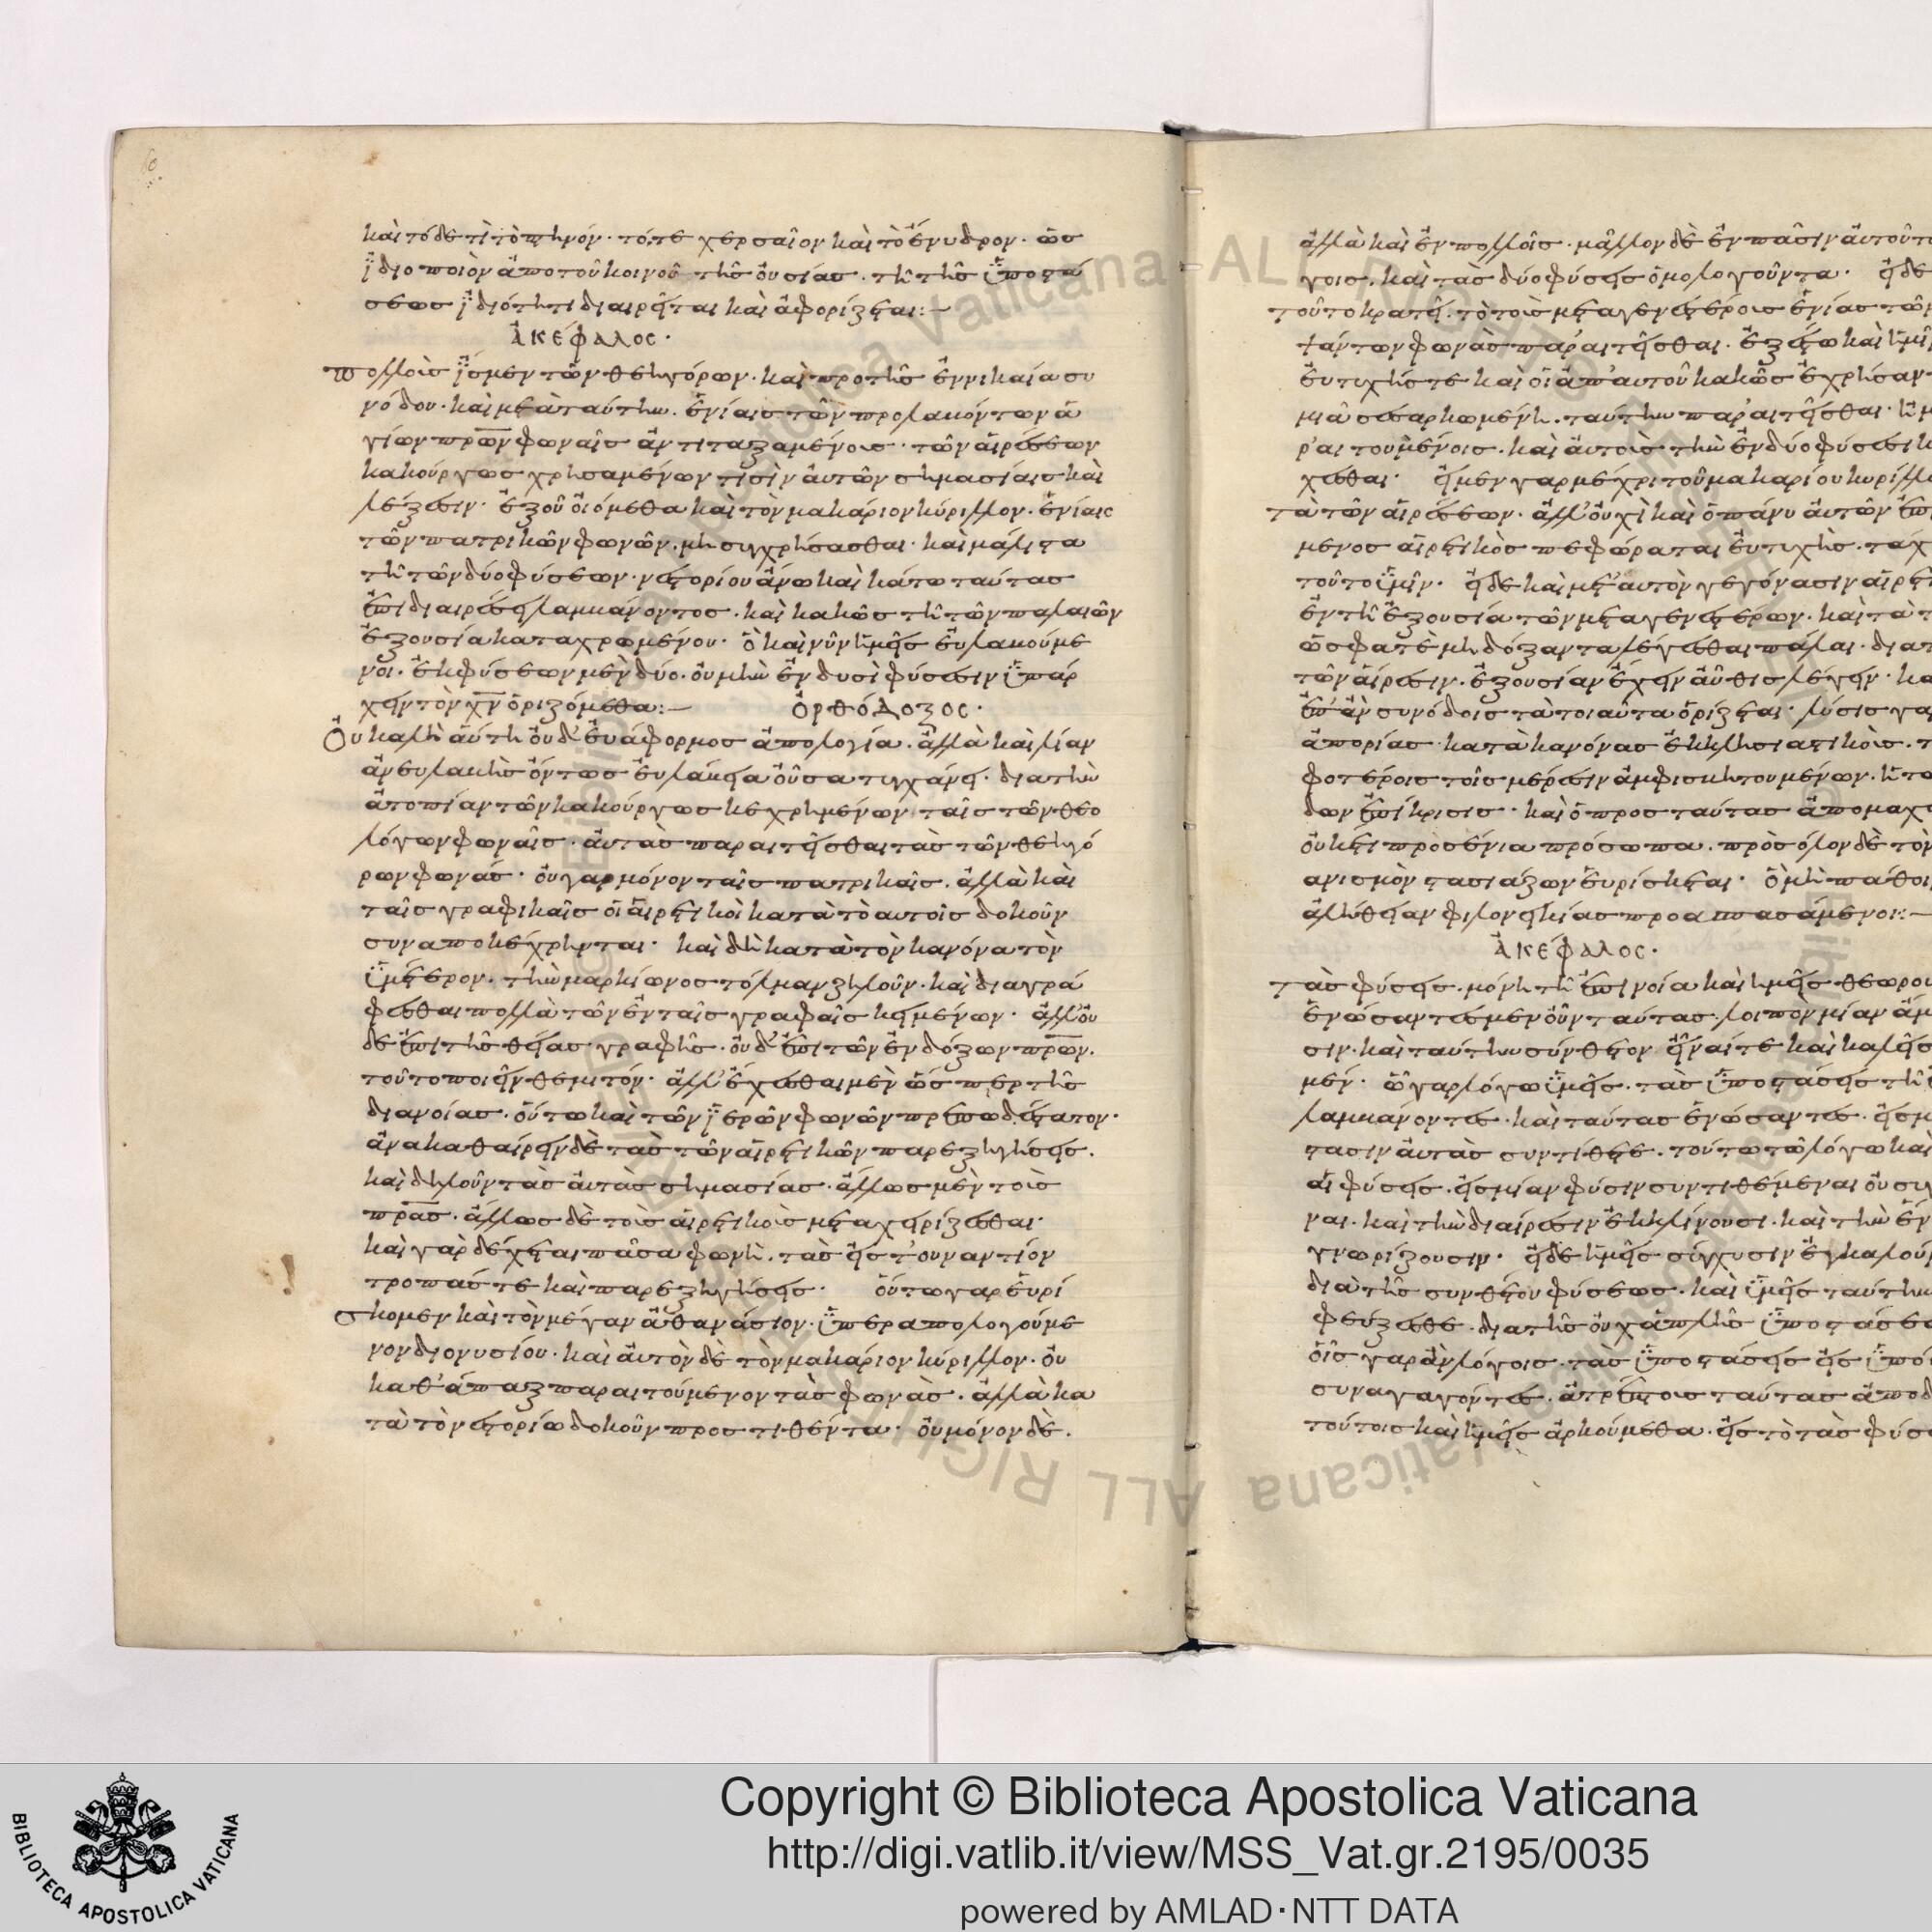 καὶ τόδε τὶ τὸ πτηνόν· τό, τε χερσαῖον καὶ τὸ ἔνυδρον· ὡς
ἰδιοποιὸν ἀπὸ τοῦ κοινοῦ τῆς οὐσίας. τῆ τῆς ὑποστά
σεως ἰδιότητι διαιρεῖται καὶ ἀφορίζεται:—
ἈΚΈΦΑΛΟC·
πολλοῖς ἴσμεν τῶν θεηγόρων· καὶ πρὸ τῆς ἐννικαία συ
νόδου· καὶ μετὰ ταύτην. ἐνίαις τῶν προλαβόντων ἁ
γίων πρων φωναῖς ἀντιταξαμένοις· τῶν αἱρέσεων
κακούργως χρησαμένων τισὶν αὐτῶν σημασίαις καὶ
λέξεσιν· ἐξ οὗ οἰόμεθα καὶ τὸν μακάριον κύριλλον. ἐνίαις
τῶν πατρικῶν φωνῶν. μὴ συγχρήσασθαι· καὶ μάλιστα
τῆ τῶν δύο φύσεων· νεστορίου ἄνω καὶ κάτω ταύτας
ἐπιδιαιρέσει λαμβάνοντος. καὶ κακῶς τῆ τῶν παλαιῶν
ἐξουσία καταχρωμένου· ὃ καὶ νῦν ἡμεῖς εὐλαβούμε
νοι. ἐκ φύσεων μὲν δύο. οὐ μὴν ἐν δυσὶ φύσεσιν ὑπάρ
χειν τὸν χν ὁριζόμεθα:—
ὈΡΘΌΔΟΞΟC·
Οὐ καλὴ αὕτη οὐδ' εὐάφορμος ἀπολογία. ἀλλὰ καὶ λίαν
ἀνευλαβὴς ὄντως εὐλάβεια οὖσα τυγχάνει· διὰ τὴν
ἀτοπίαν τῶν κακούργως κεχρημένων ταῖς τῶν θεο
λόγων φωναῖς. αὐτὰς παραιτεῖσθαι τὰς τῶν θεηγό
ρων φωνάς· οὐ γαρ μόνον ταῖς πατρικαῖς. ἀλλὰ καὶ
ταῖς γραφικαῖς οἱ αἱρετικοὶ κατὰ τὸ αυτοῖς δοκοῦν
συναποκέχρηνται· καὶ δὴ κατὰ τὸν κανόνα τὸν
ὑμέτερον. τὴν μαρκίωνος τόλμαν ζηλοῦν· καὶ διαγρά
φεσθαι πολλὰ τῶν ἐν ταῖς γραφαῖς κειμένων· ἀλλ' οὐ
δὲ ἐπὶ τῆς θείας γραφῆς. οὐδ' ἐπὶ τῶν ἐνδόξων πρων.
τοῦτο ποιεῖν θεμιτόν· ἀλλ' ἔχεσθαι μὲν ὥσπερ τῆς
διανοίας. οὕτω καὶ τῶν ἱερῶν φωνῶν πρεπωδέστατον·
ἀνακαθαίρειν δὲ τὰς τῶν αἱρετικῶν παρεξηγήσεις.
καὶ δηλοῦν τὰς αὐτὰς σημασίας. ἄλλως μὲν τοῖς
πρασ. ἄλλως δὲ τοῖς αἱρετικοῖς μεταχειρίζεσθαι·
καὶ γὰρ δέχεται πᾶσα φωνὴ. τὰς εἰς τ'ουναντίον
τροπάς τε καὶ παρεξηγήσεις· οὕτω γαρ εὑρί
σκομεν καὶ τὸν μέγαν ἀθανάσιον. ὑπεραπολογούμε
νον διονυσίου· καὶ αὐτὸν δὲ τὸν μακάριον κύριλλον. οὐ
καθ'άπαξ παραιτούμενον τὰς φωνὰς. ἀλλὰ κα
τὰ τὸ νεστορίω δοκοῦν προστιθέντα· οὐ μόνον δὲ.
ἀλλὰ καὶ ἐν πολλοῖς. μᾶλλον δὲ ἐν πᾶσιν αὐτοῦ
γοις. καὶ τὰς δύο φύσεις ὁμολογοῦντα· εἰ δὲ
τοῦτο κρατεῖ. τὸ τοῖς μεταγενεστέροις ἐνίας τῶν
φωνὰς παραιτεῖσθαι. ἐξέστω καὶ
εὐτυχής τε καὶ οἱ ἀπ'αυτοῦ κακῶς ἐχρήσαν
μια σεσαρκωμένη. ταύτην παραιτεῖσθαι·
ραιτουμένοις. καὶ αὐτοῖς τὴν ἐν δύο φύσεσι
χεσθαι· εἰ μεν γαρ μέχρι τοῦ μακαρίου κυρίλλ
τὰ τῶν αἱρέσεων. ἀλλ'οὐχὶ καὶ ὁ πάνυ αὐτῶν
μενος αἱρετικὸς πεφώραται εὐτυχής.
τοῦτο ὑμῖν. εἰ δὲ καὶ μετ'αυτὸν γεγόνασιν
ἐν τῆ ἐξουσία τῶν μεταγενεστέρων. καὶ τὰ
ὡς φατὲ μὴ δόξαντα λέγεσθαι πάλαι.
τῶν αἵρεσιν. ἐξουσίαν ἔχειν αὖθις λέγειν·
συνόδοις τὰ τοιαῦτα ὁρίζεται· λύσις
ἀπορίας κατὰ κανόνας ἐκκλησιαστικοὺς.
φοτέροις τοῖς μέρεσιν ἀμφισβητουμένων.
δων ἐπίκρισις· καὶ ὁ προς ταύτας ἀπομαχ
οὐκέτι πρὸς ἕνια πρόσωπα. πρὸς ὅλον δὲ τὸν
ανισμὸν στασιάζων εὑρίσκεται· ὃ μὴ
ἀλήθειαν φιλονεικίας προασπασάμενοι:—
ἈΚΈΦΑΛΟC·
τὰς φύσεις. μόνη τῆ ἐπινοία καὶ ἡμεῖς
ἑνώσαντες μὲν οὖν ταύτας. λοιπὸν μίαν
σιν. καὶ ταύτην σύνθετον εἶναί τε καὶ
μεν· ὧ γαρ λόγω ὑμεῖς. τὰς ὑποστάσεις τῆ
λαμβάνοντες. καὶ ταύτας ἑνώσαντες.
στασιν αὐτὰς συντίθετε. τούτω τῶ λόγω καὶ
αἱ φύσεις. εἰς μίαν φύσιν συντιθέμεναι
ναι. καὶ τὴν διαίρεσιν ἐκκλίνουσι. καὶ τὴν
γνωρίζουσιν· εἰ δὲ ἡμεῖς σύγχυσιν
διὰ τῆς συνθέτου φύσεως. καὶ ὑμεῖς ταύτην
φεύξεσθε. δια τῆς οὐχ ἁπλῆς
οἷς γαρ ἂν λόγοις. τὰς ὑποστάσεις εἰς
συναγαγόντες. ἀτρέπτους ταύτας
τούτοις καὶ ἡμεῖς ἀρκούμεθα. εἰς τὸ τὰς
Copyright © Biblioteca Apostolica Vaticana
http://digi.vatlib.it/view/MSS_Vat.gr.2195/0035
powered by AMLAD·NTT DATA
BIBLIOTECA APOSTOLICA VATICANA